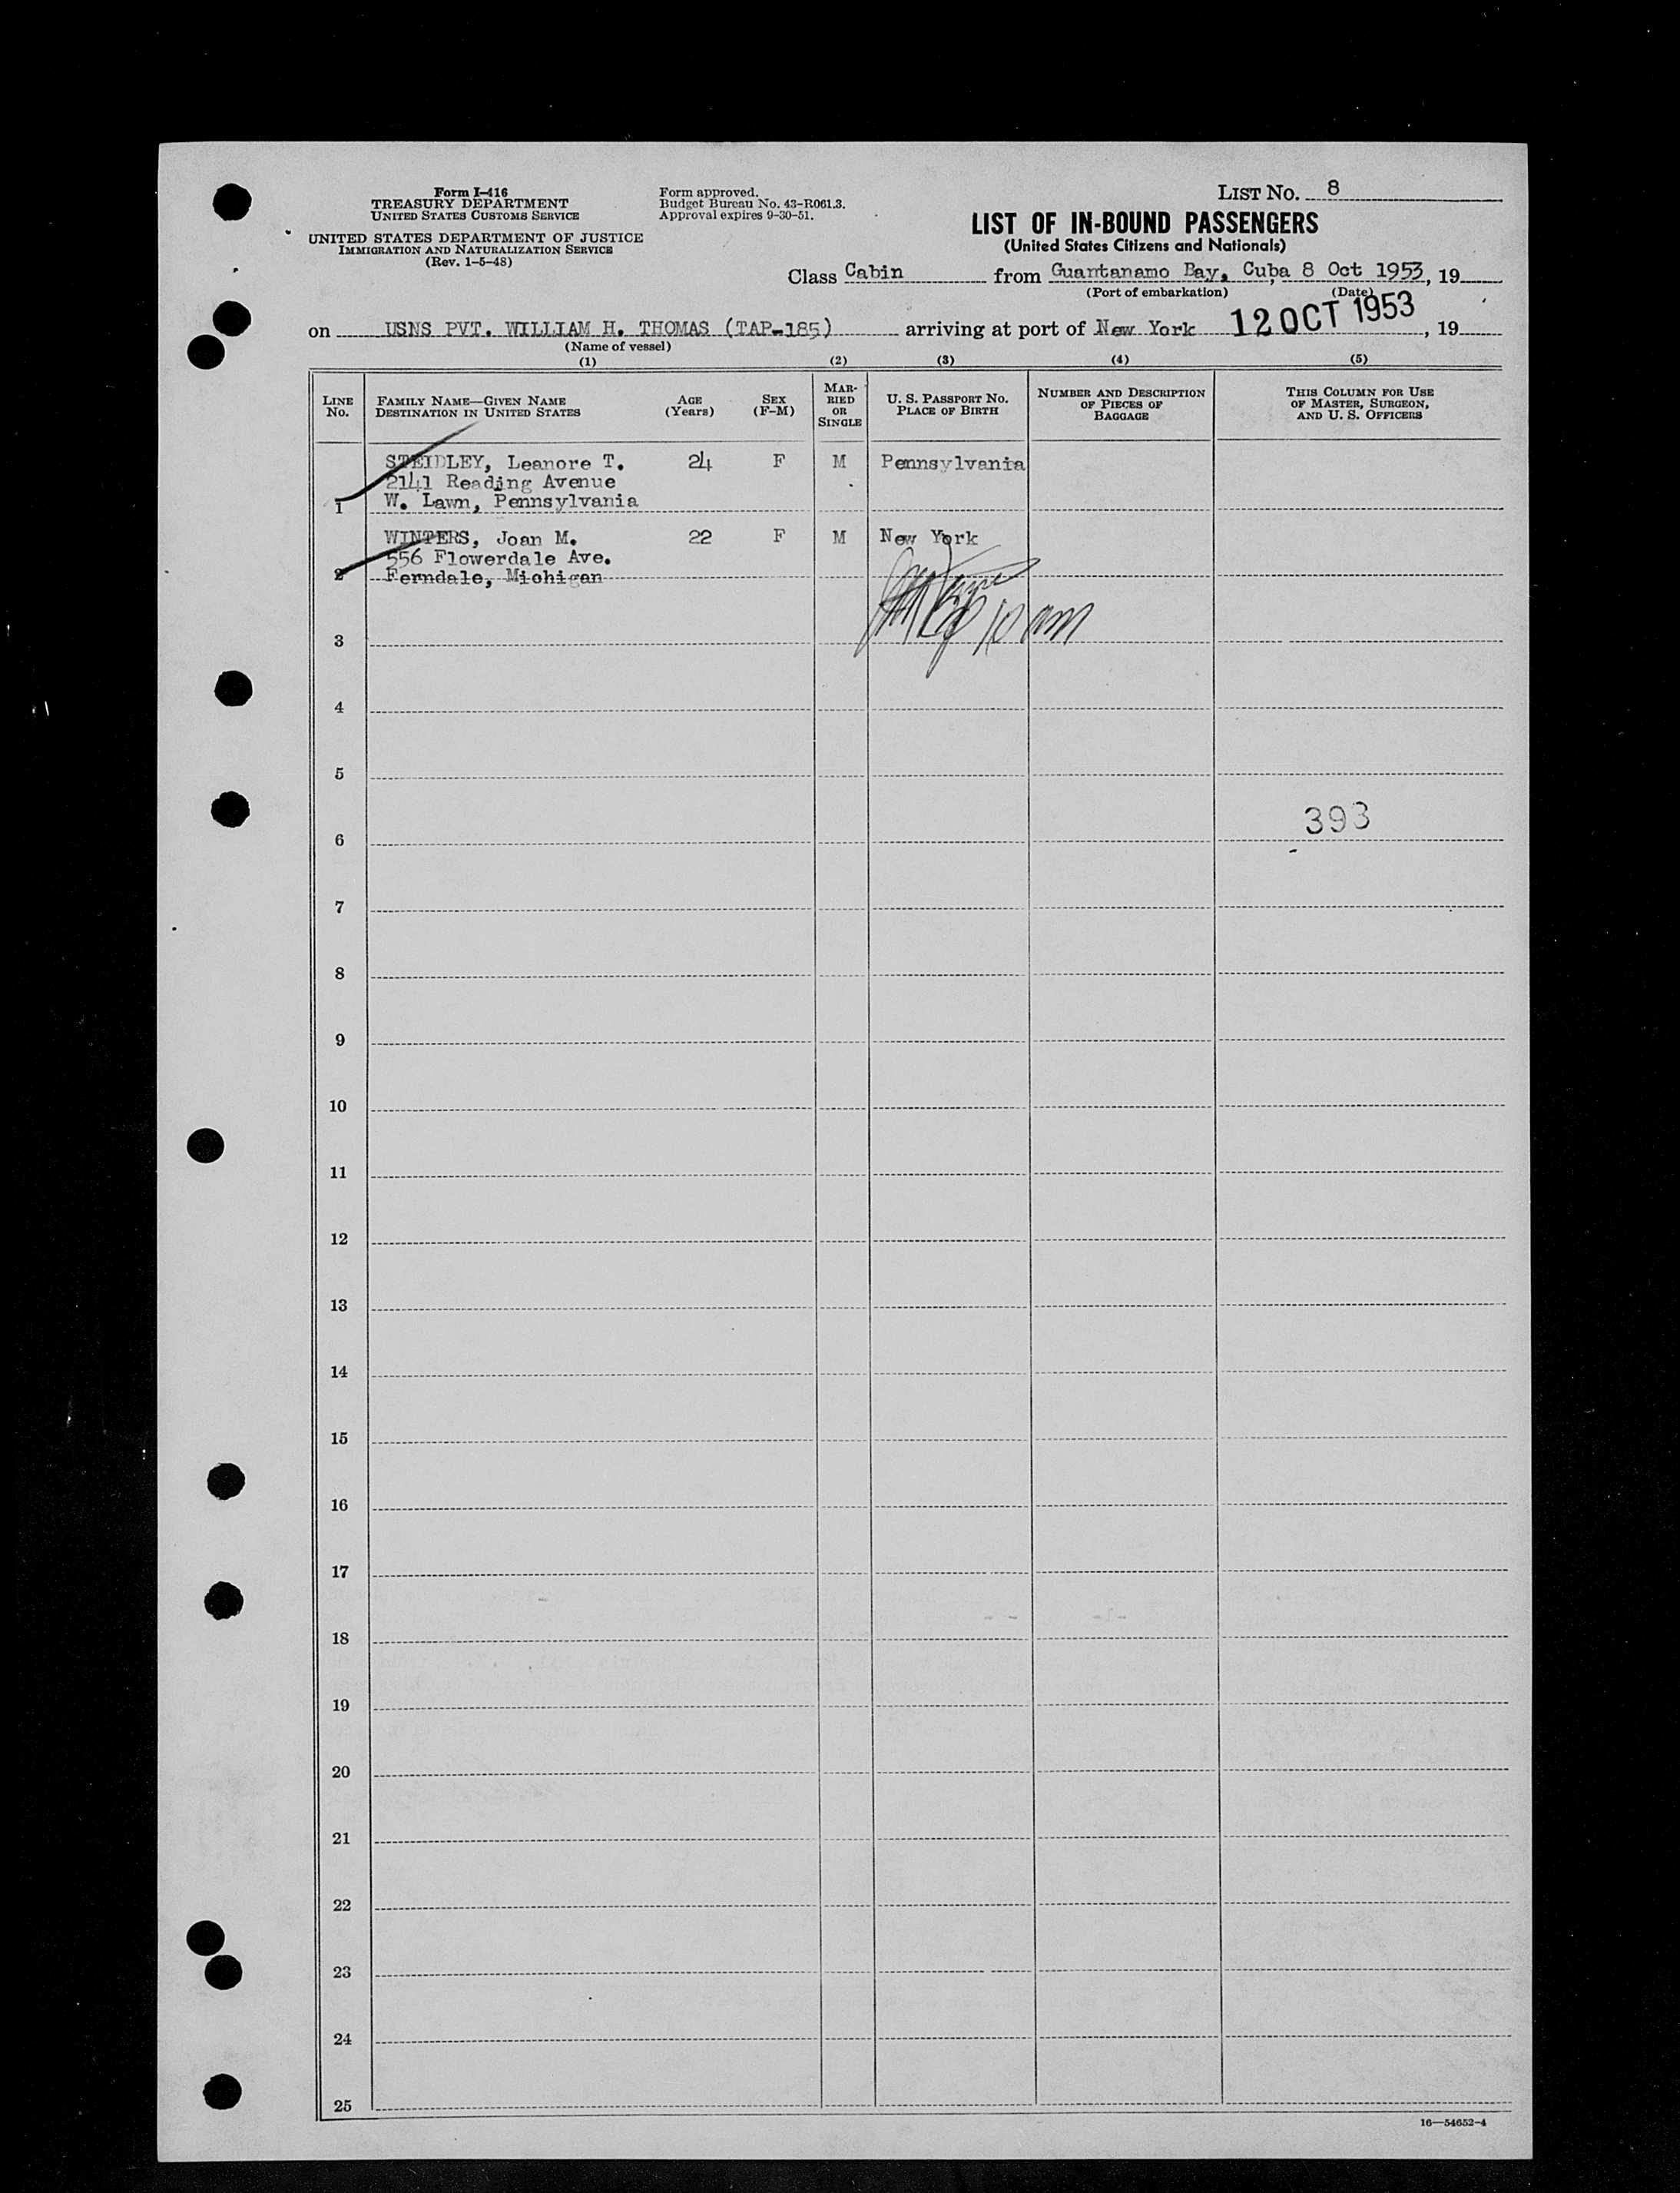 Form I-416
TREASURY DEPARTMENT
UNITED STATES CUSTOMS SERVICE
UNITED STATES DEPARTMENT OF JUSTICE
IMMIGRATION AND NATURALIZATION SERVICE
(Rev. 1-5-48)
Form approved.
Budget Bureau No. 43-R061.3.
Approval expires 9-30-51.
LIST NO. 8
LIST OF IN-BOUND PASSENGERS
(United States Citizens and Nationals)
Class Cabin from Guantanamo Bay, Cuba, 8 Oct 1953, 19
(Port of embarkation) (Date)
on USNS PVT. WILLIAM H. THOMAS (TAP-185) arriving at port of New York 12 OCT 1953, 19
(Name of vessel)
(1) (2) (3) (4) (5)
LINE NO.
FAMILY NAME—GIVEN NAME
DESTINATION IN UNITED STATES
AGE
(Years)
SEX
(F-M)
MAR-
RIED
OR
SINGLE
U. S. PASSPORT NO.
PLACE OF BIRTH
NUMBER AND DESCRIPTION
OF PIECES OF
BAGGAGE
THIS COLUMN FOR USE
OF MASTER, SURGEON,
AND U. S. OFFICERS
STEIDLEY, Leanore T. 24 F M Pennsylvania
2141 Reading Avenue
1 W. Lawn, Pennsylvania
WINTERS, Joan M. 22 F M New York
556 Flowerdale Ave.
2 Ferndale, Michigan
3
4
5
393
6
7
8
9
10
11
12
13
14
15
16
17
18
19
20
21
22
23
24
25
16—54652-4